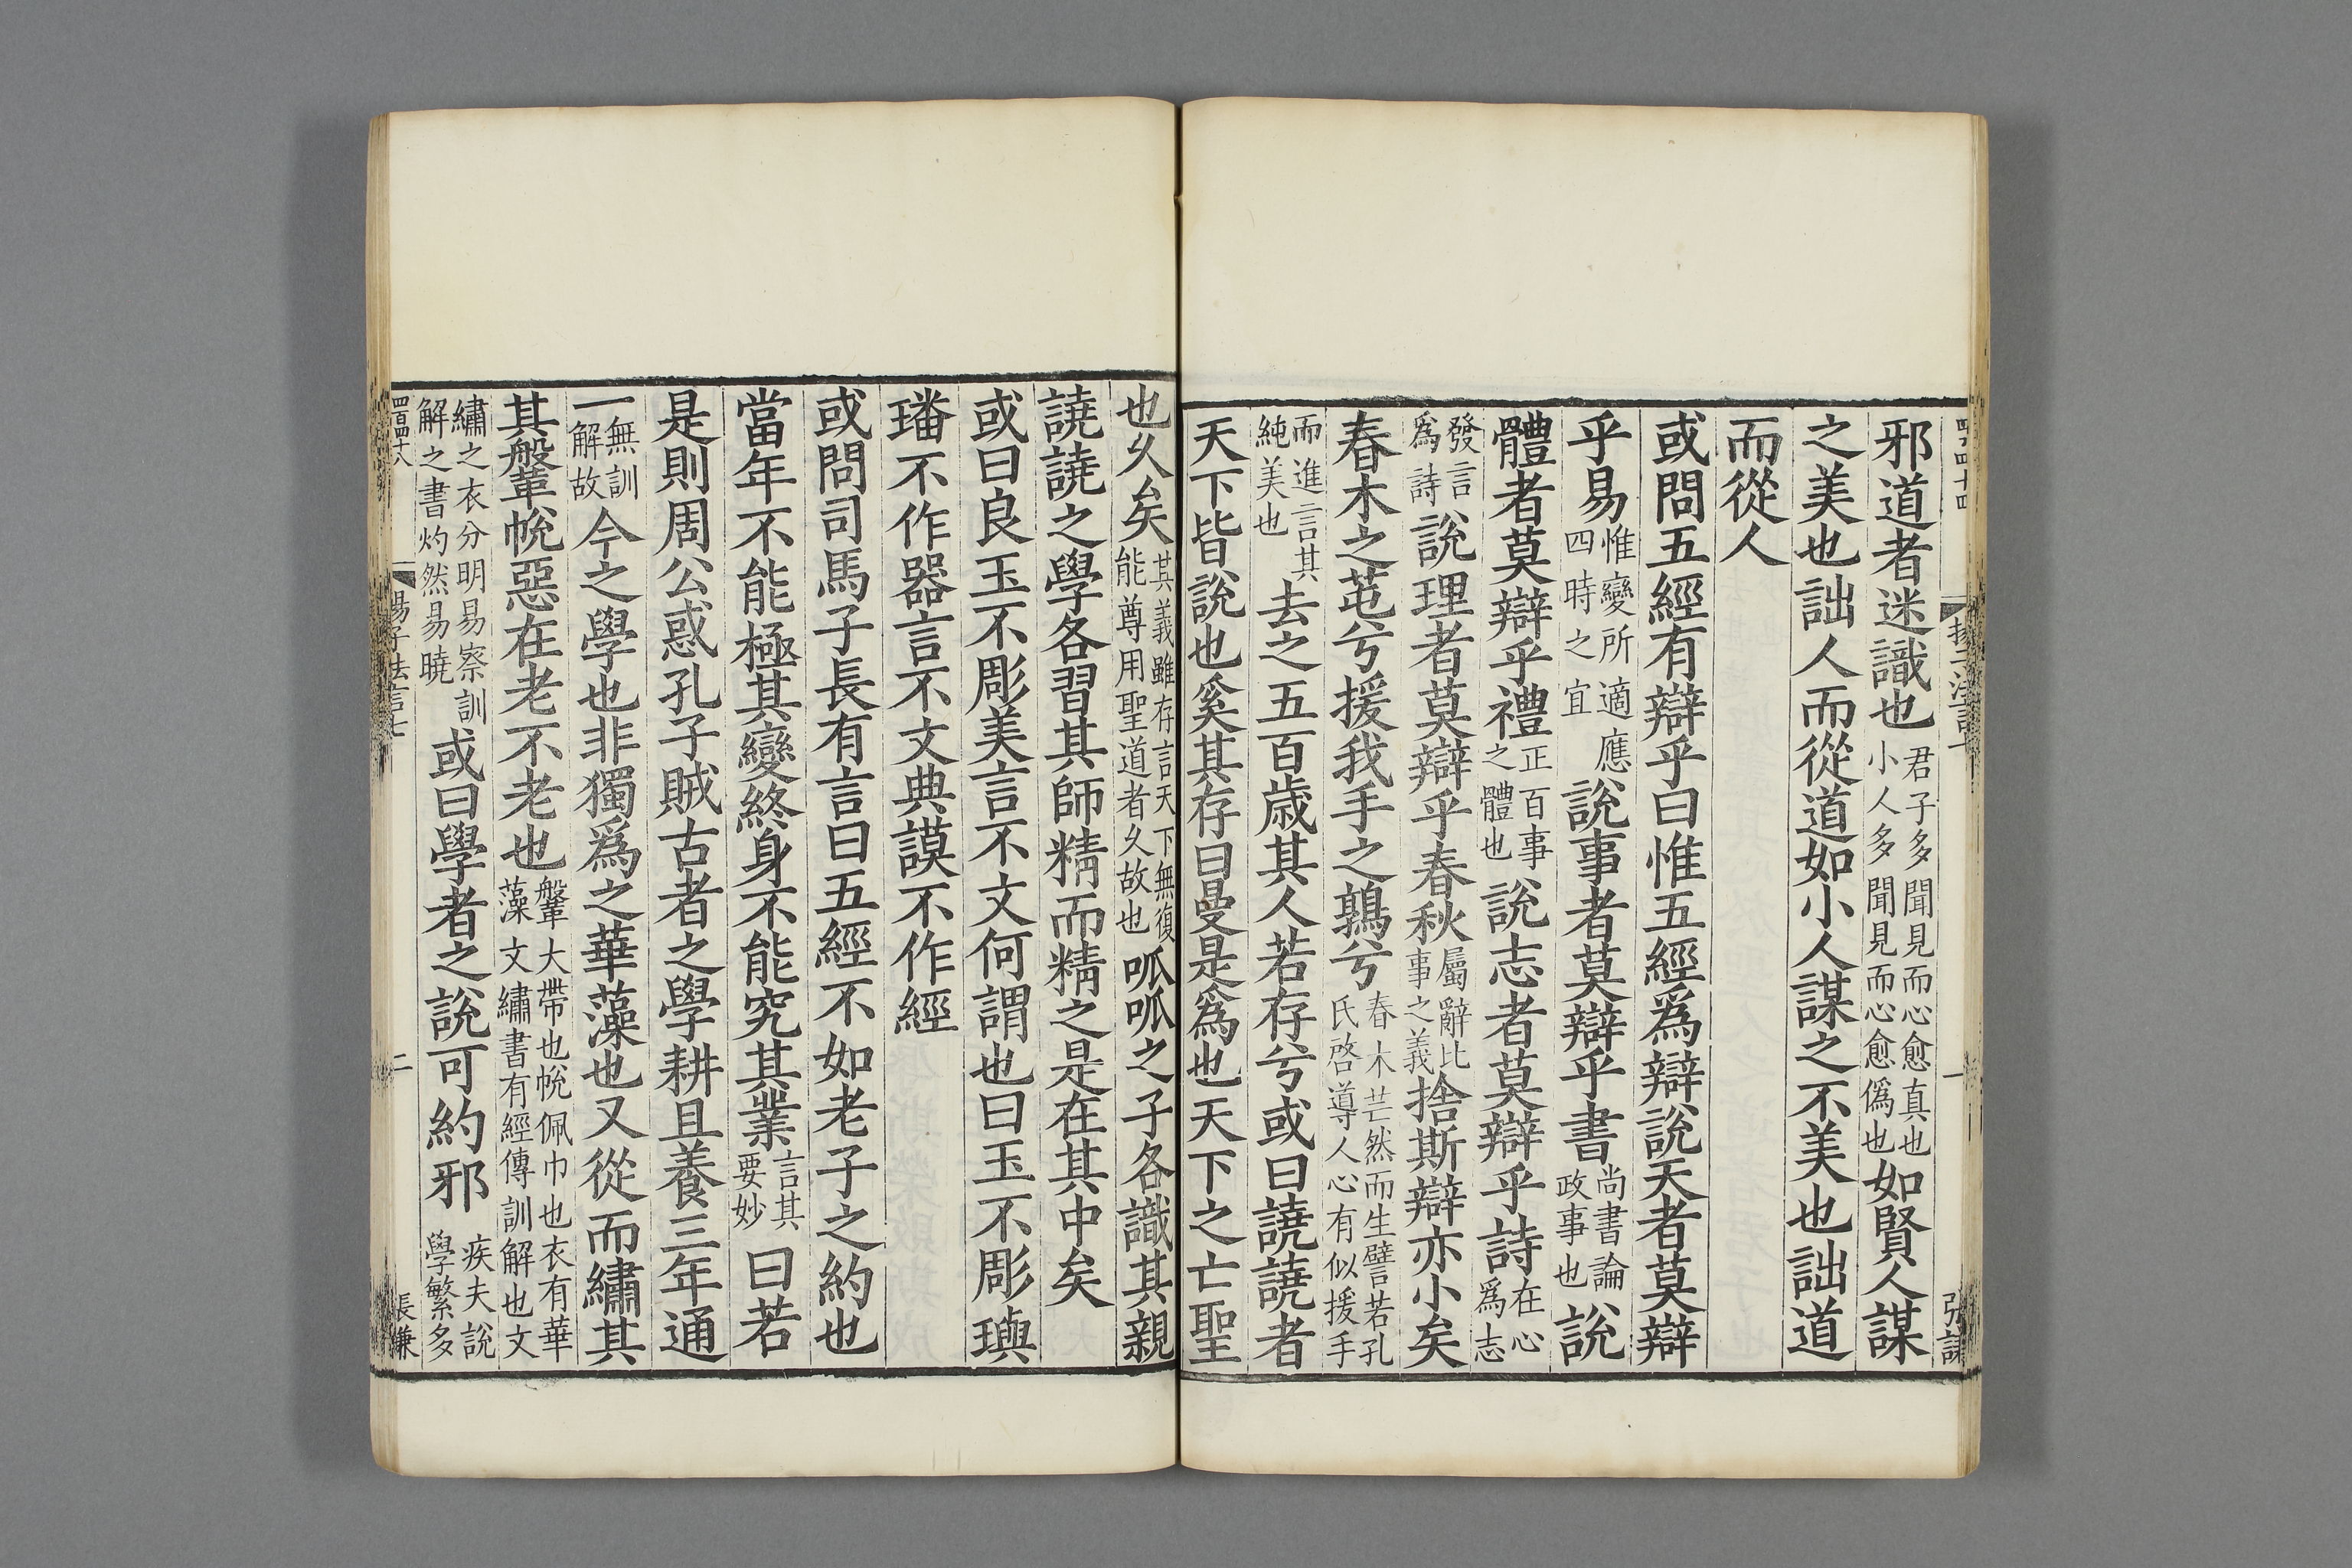 邪道者迷識也君子多聞見而心愈真也小人多聞見而心愈僞也如賢人謀
之美也詘人而從道如小人謀之不美也詘道
而從人
或問五經有辯乎曰惟五經爲辯說天者莫辯
乎易惟變所適應四時之宜說事者莫辯乎書尚書論政事也說
體者莫辯乎禮正百事之體也說志者莫辯乎詩在心爲志
發言爲詩說理者莫辯乎春秋屬辭比事之義捨斯辯亦小矣
春木之芚兮援我手之鶉兮春木芒然而生譬若孔氏啓導人心有似援手
而進言其純美也去之五百歲其人若存兮或曰譊譊者
天下皆說也奚其存曰曼是爲也天下之亡聖
也久矣其義雖存言天下無復能尊用聖道者久故也呱呱之子各識其親
譊譊之學各習其師精而精之是在其中矣
或曰良玉不彫美言不文何謂也曰玉不彫璵
璠不作器言不文典謨不作經
或問司馬子長有言曰五經不如老子之約也
當年不能極其變終身不能究其業言其要妙曰若
是則周公惑孔子賊古者之學耕且養三年通
一無訓解故今之學也非獨爲之華藻也又從而繡其
其鞶鞶帨惡在老不老也鞶大帶也帨佩巾也衣有華藻文繡書有經傳訓解也文
繡之衣分明易察訓解之書灼然易曉或曰學者之說可約邪疾夫說學繁多
楊子法言七
二
長兼